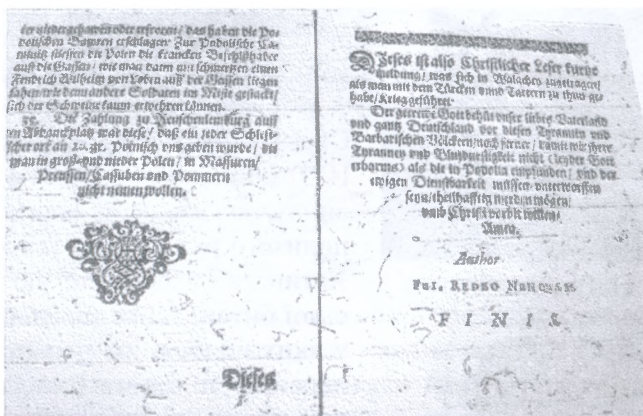 ter nidergehawen oder erfroren/ das haben die Po-
dolischen Bawren erschlagen: Zur Podolische Ca-
stiessen die Polen die krancken Beselchshaber
auß die Gassen/ wie man dann mit schmertzen einen
Fendrich Wilhelm von Loben auß der Gassen liegen
sahen/ wie dem andere Soldaten im Mist gesteckt/
sich der Schweine kaum erwehren können.
Die Zahlung zu Reuschenlemburg auff
den Abdanckplatz war diese/ daß ein jeder Schlesi-
scher ort an 20. gr. Polnisch vns geben wurde/ die
man in groß- vnd nieder Polen/ in Massuren/
Preussen/ Cassuben vnd Pommern
nicht nemen wollen.
Dieses
DIeses ist also Christlicher Leser kurtze
meldung/ was sich in Walachey zugetragen/
als man mit dem Türcken vnnd Tattern zu thun ge-
habt/ Krieg geführet.
Der getrewe Gott behüt vnser liebes Vaterland
vnd gantz Deutschland vor diesen Tyrannen vnd
Barbarischen Völckern/ noch ferner/ damit wir ihrer
Tyranney vnd Blutdurstigkeit nicht (leyder Gott
erbarms) als die in Podolia empfunden/ vnd der
ewigen Dienstbarkeit müssen vnterworffen
seyn/ theilhafftig werden mögen/
vmb Christi willen/
Amen.
Author
FINIS.